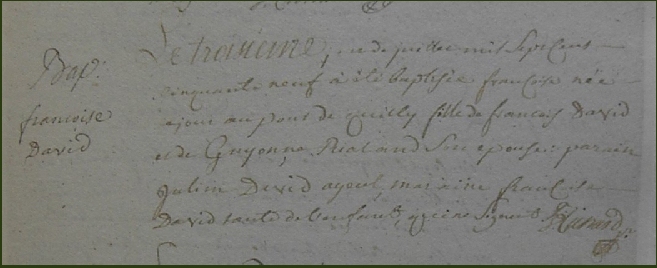 Bap.
françoise
David
Le troisieme, jour de juillet mil sept cent
cinquante neuf à été baptisée francoise née
ce jour au pont de quilly fille de francois David
et de Guyonne Rialand son epouse: parain
Julien David ayeul, maraine francoise
David tante de l'enfant, qui ne signent